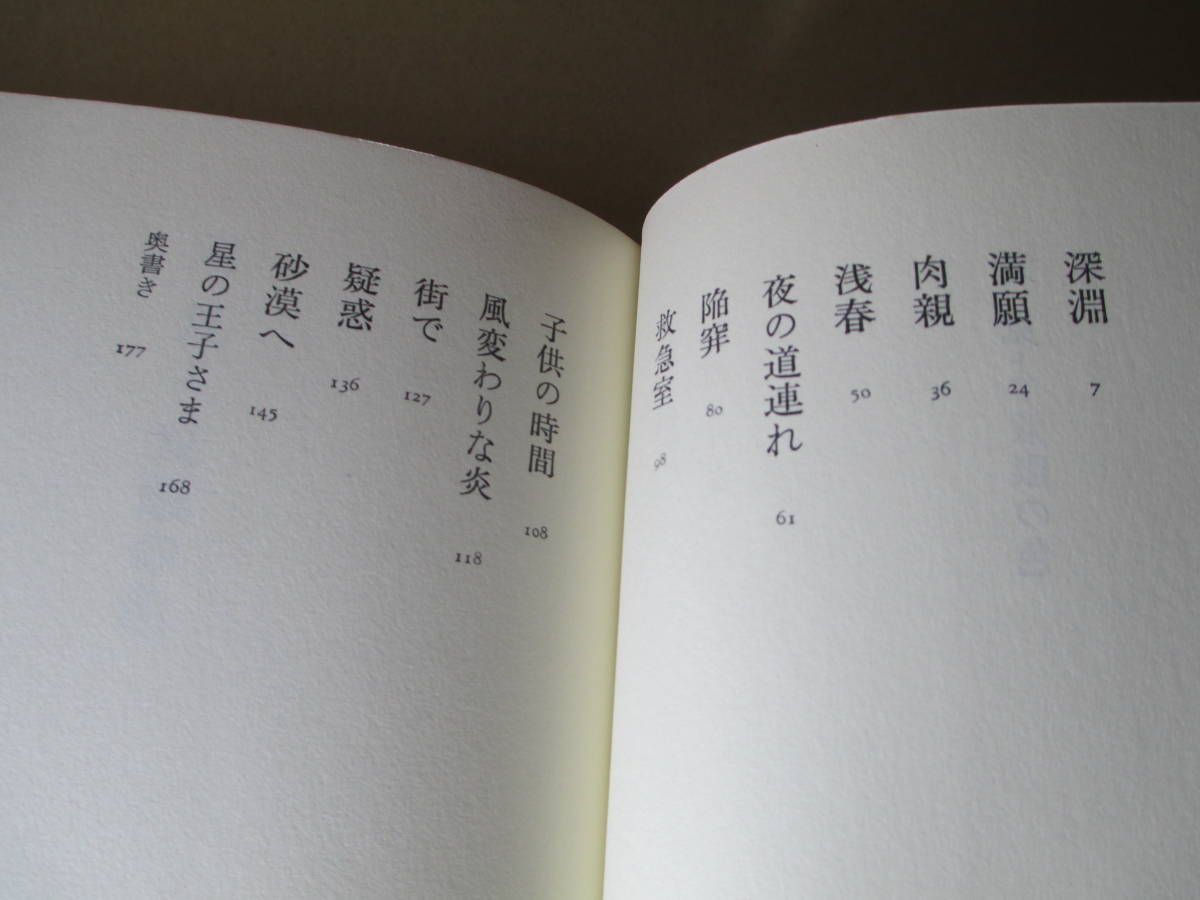 深淵 7
満願 24
肉親 36
浅春 50
夜の道連れ 61
陥穽 80
救急室 98
子供の時間 108
風変わりな炎 118
街で 127
疑惑 136
砂漠へ 145
星の王子さま 168
奥書き 177